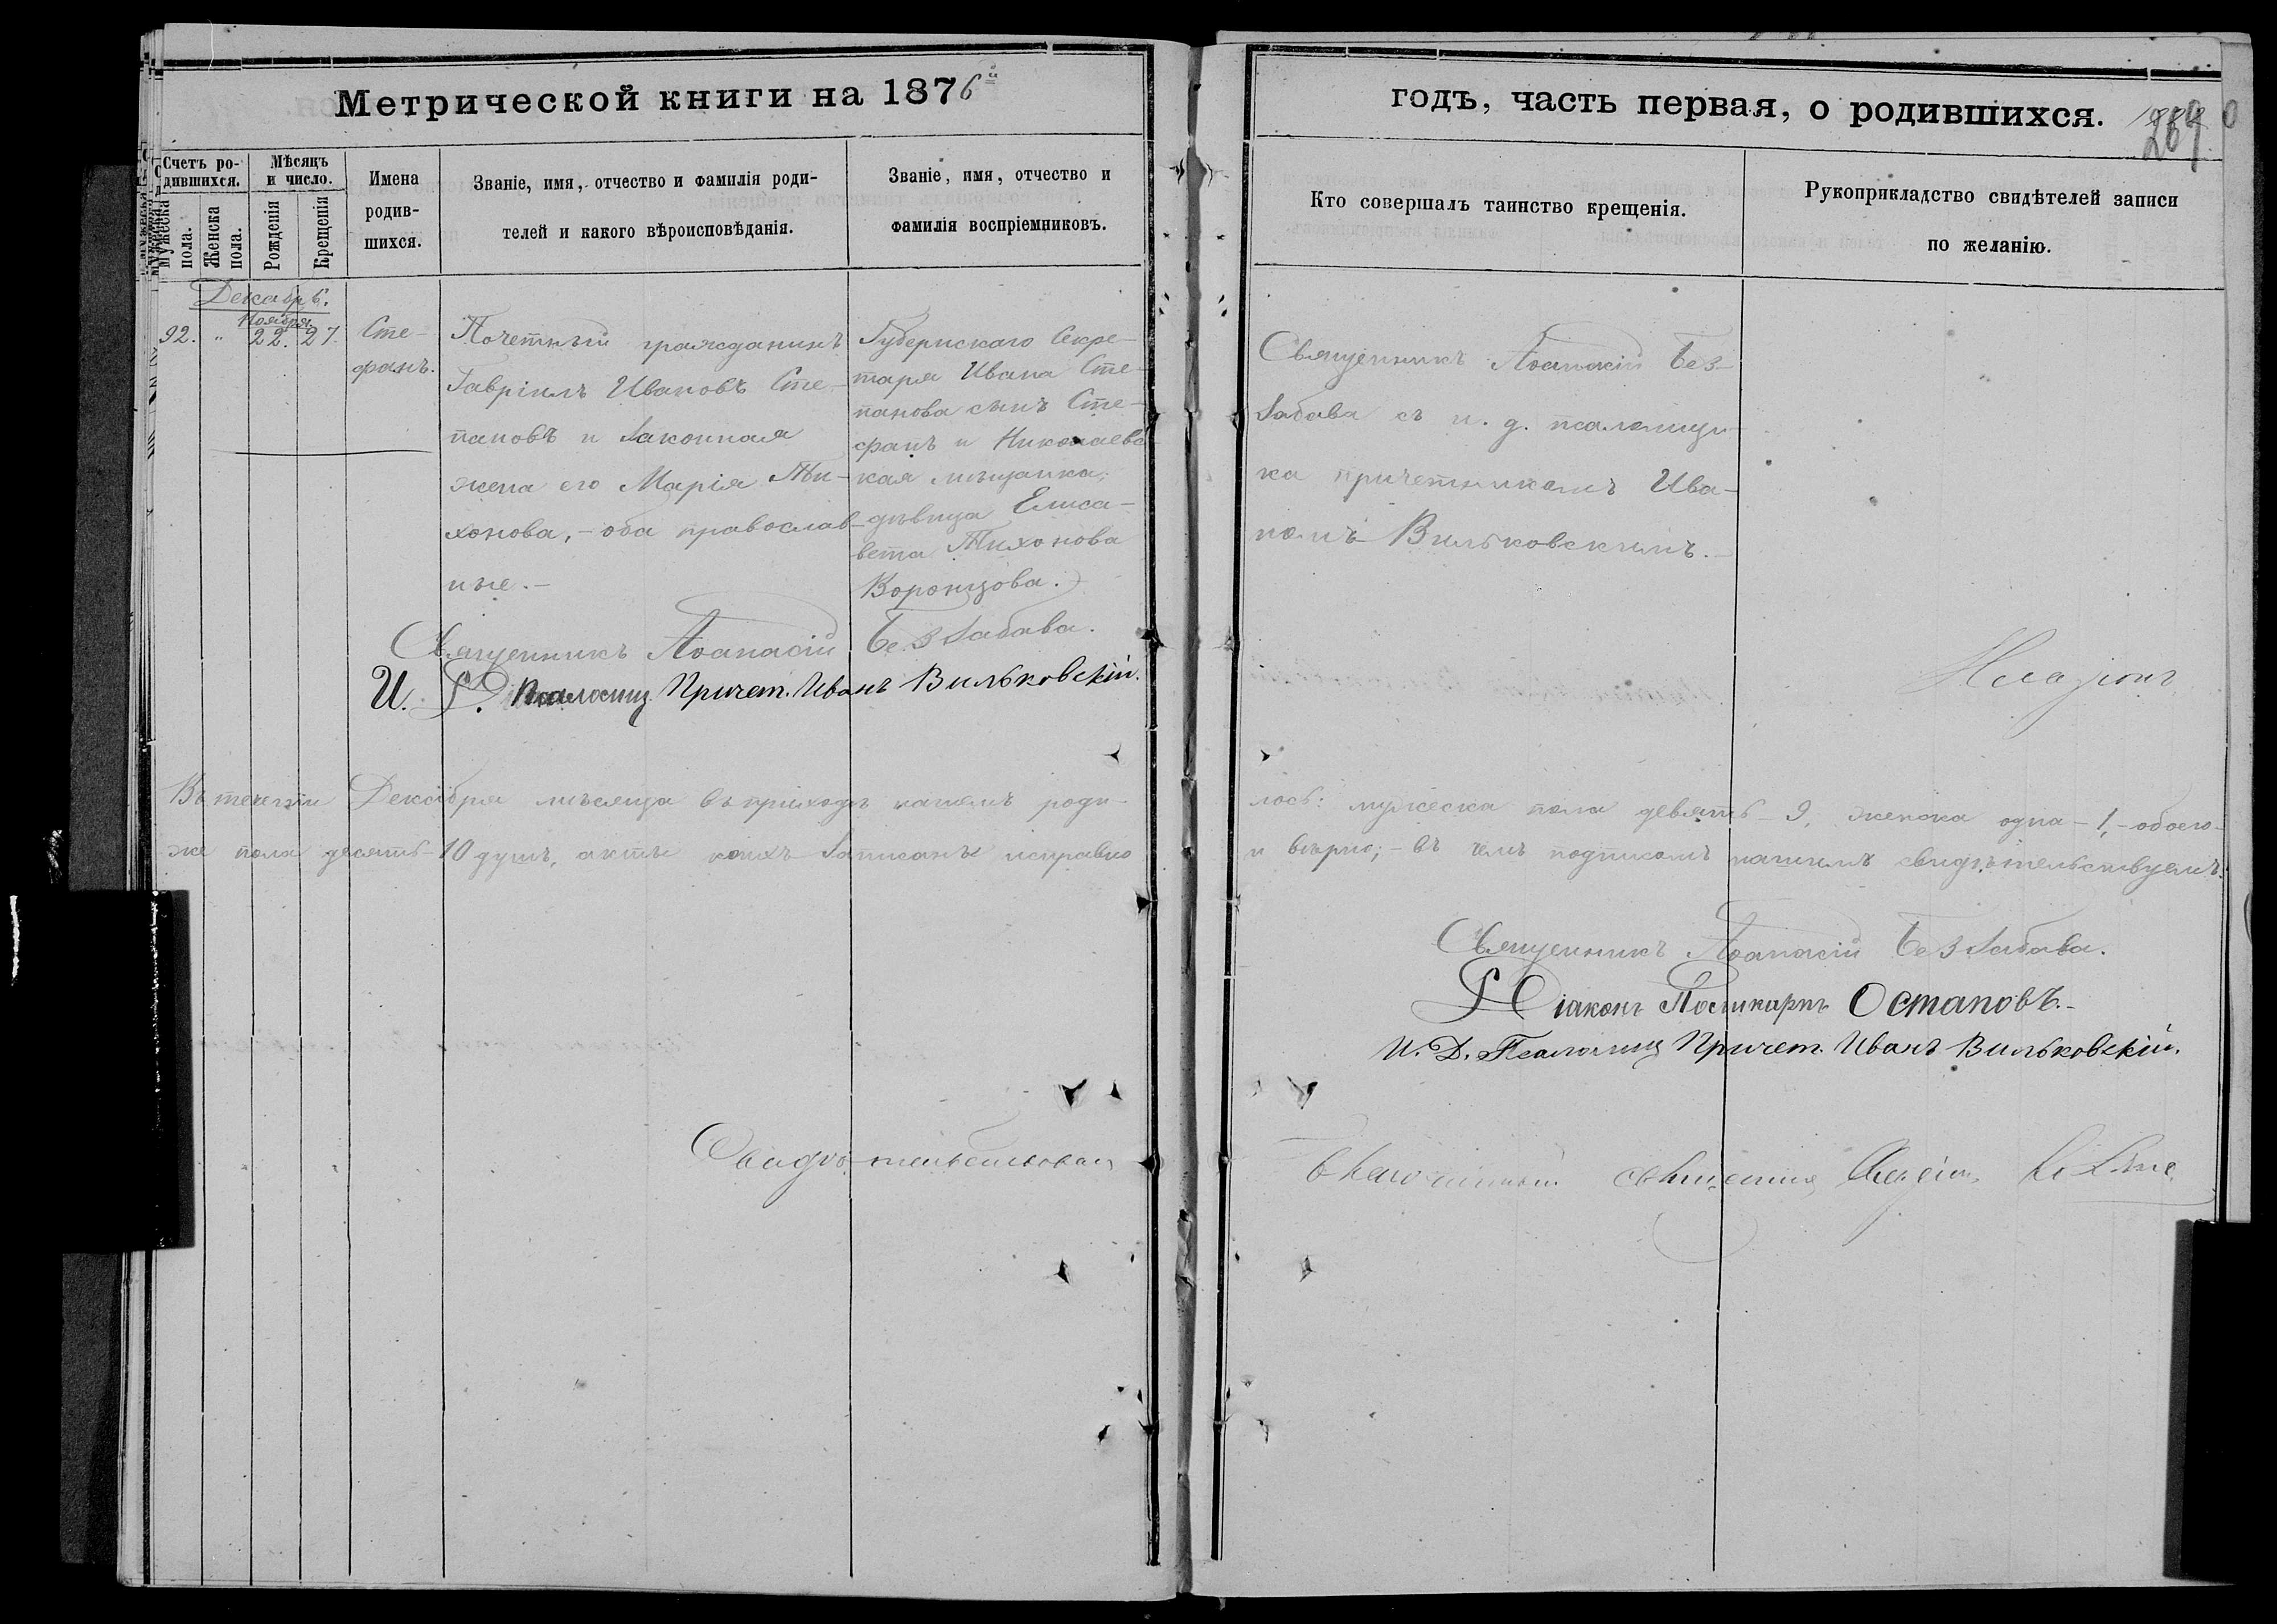 Метрической книги на 1876й
годъ, часть первая, о родившихся.
269
Счетъ ро-
дившихся.
Мѣсяцъ
и число.
Мужеска
пола.
Женска
пола.
Рожденія
Крещенія
Имена
родив-
шихся.
Званіе, имя, отчество и фамилія роди-
телей и какого вѣроисповѣданія.
Званіе, имя, отчество и
фамилія воспріемниковъ.
Кто совершалъ таинство крещенія.
Рукоприкладство свидѣтелей записи
по желанію.
Декабрь.
Ноября
92. " 22. 27.
Сте-
фанъ.
Почетный гражданинъ
Гавріилъ Ивановъ Сте-
пановъ и законная
жена его Марія Ти-
хонова, - оба православ-
ные. -
Губернскаго Секре-
таря Ивана Сте-
панова сынъ Сте-
фанъ и Николаевс-
кая мѣщанка,
дѣвица Елиса-
вета Тихонова
Воронцова.
Священникъ Аѳанасій Без-
забава съ и. д. псаломщи-
ка причетникомъ Ива-
номъ Вильковскимъ. -
Священникъ Аѳанасій Беззабава.
И. Д. Псаломщ. Причет. Иванъ Вильковскій.
Въ теченіи Декабря мѣсяца въ приходѣ нашемъ роди-
лось: мужеска пола девять - 9, женска одна - 1, - обоего
же пола десять - 10 душъ, акты коихъ записаны исправно
и вѣрно; - въ чемъ подписомъ нашимъ свидѣтельствуемъ.
Священникъ Аѳанасій Беззабава.
Діаконъ Поликарпъ Остаповъ. -
И. Д. Псаломщ Причет. Иванъ Вильковскій.
Свидѣтельствовалъ
Благочинный священникъ